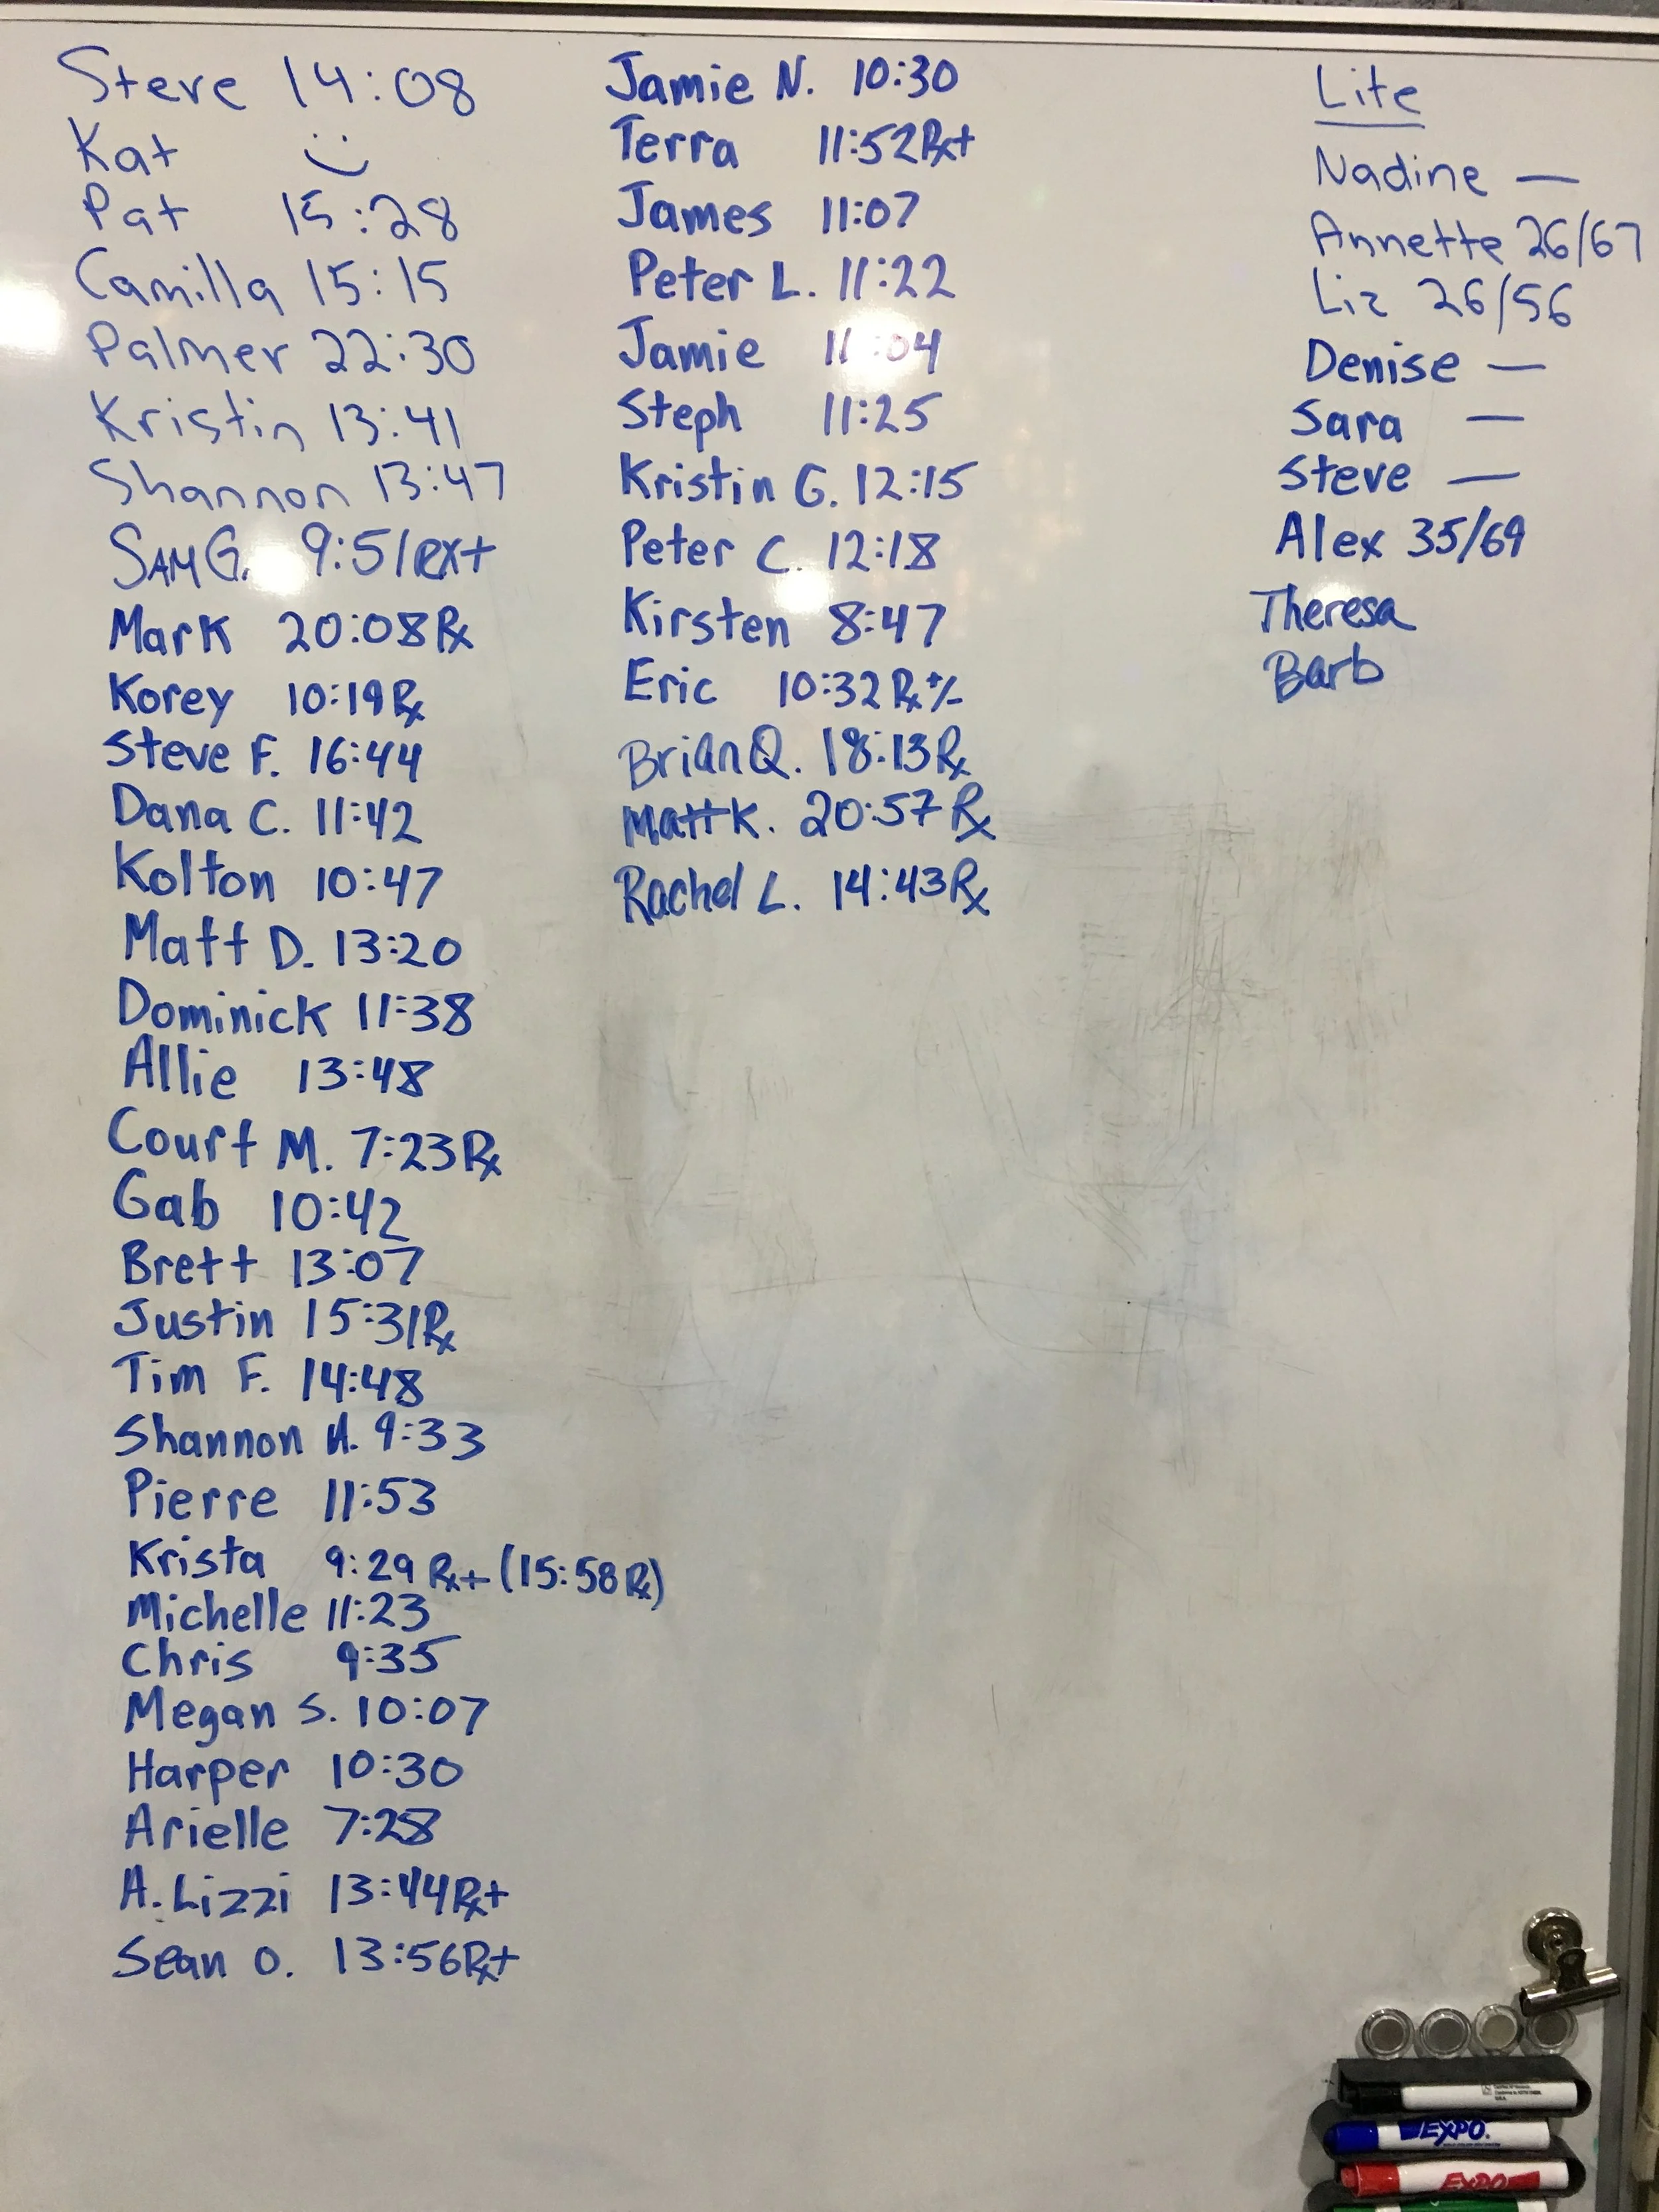 Steve 14:08
Kat
Pat 15:28
Camilla 15:15
Palmer 22:30
Kristin 13:41
Shannon 13:47
SAM G. 9:51 RX+
Mark 20:08 Rx
Korey 10:19 Rx
Steve F. 16:44
Dana C. 11:42
Kolton 10:47
Matt D. 13:20
Dominick 11:38
Allie 13:48
Court M. 7:23 Rx
Gab 10:42
Brett 13:07
Justin 15:31 Rx
Tim F. 14:48
Shannon A. 9:33
Pierre 11:53
Krista 9:29 Rx+ (15:58 Rx)
Michelle 11:23
Chris 9:35
Megan S. 10:07
Harper 10:30
Arielle 7:28
A. Lizzi 13:44 Rx+
Sean O. 13:56 Rx+
Jamie N. 10:30
Terra 11:52 Rx+
James 11:07
Peter L. 11:22
Jamie 11:04
Steph 11:25
Kristin G. 12:15
Peter C. 12:18
Kirsten 8:47
Eric 10:32 Rx +/-
Brian Q. 18:13 Rx
Matt K. 20:57 Rx
Rachel L. 14:43 Rx
Lite
Nadine —
Annette 26/67
Liz 26/56
Denise —
Sara —
Steve —
Alex 35/69
Theresa
Barb
EXPO
EXPO